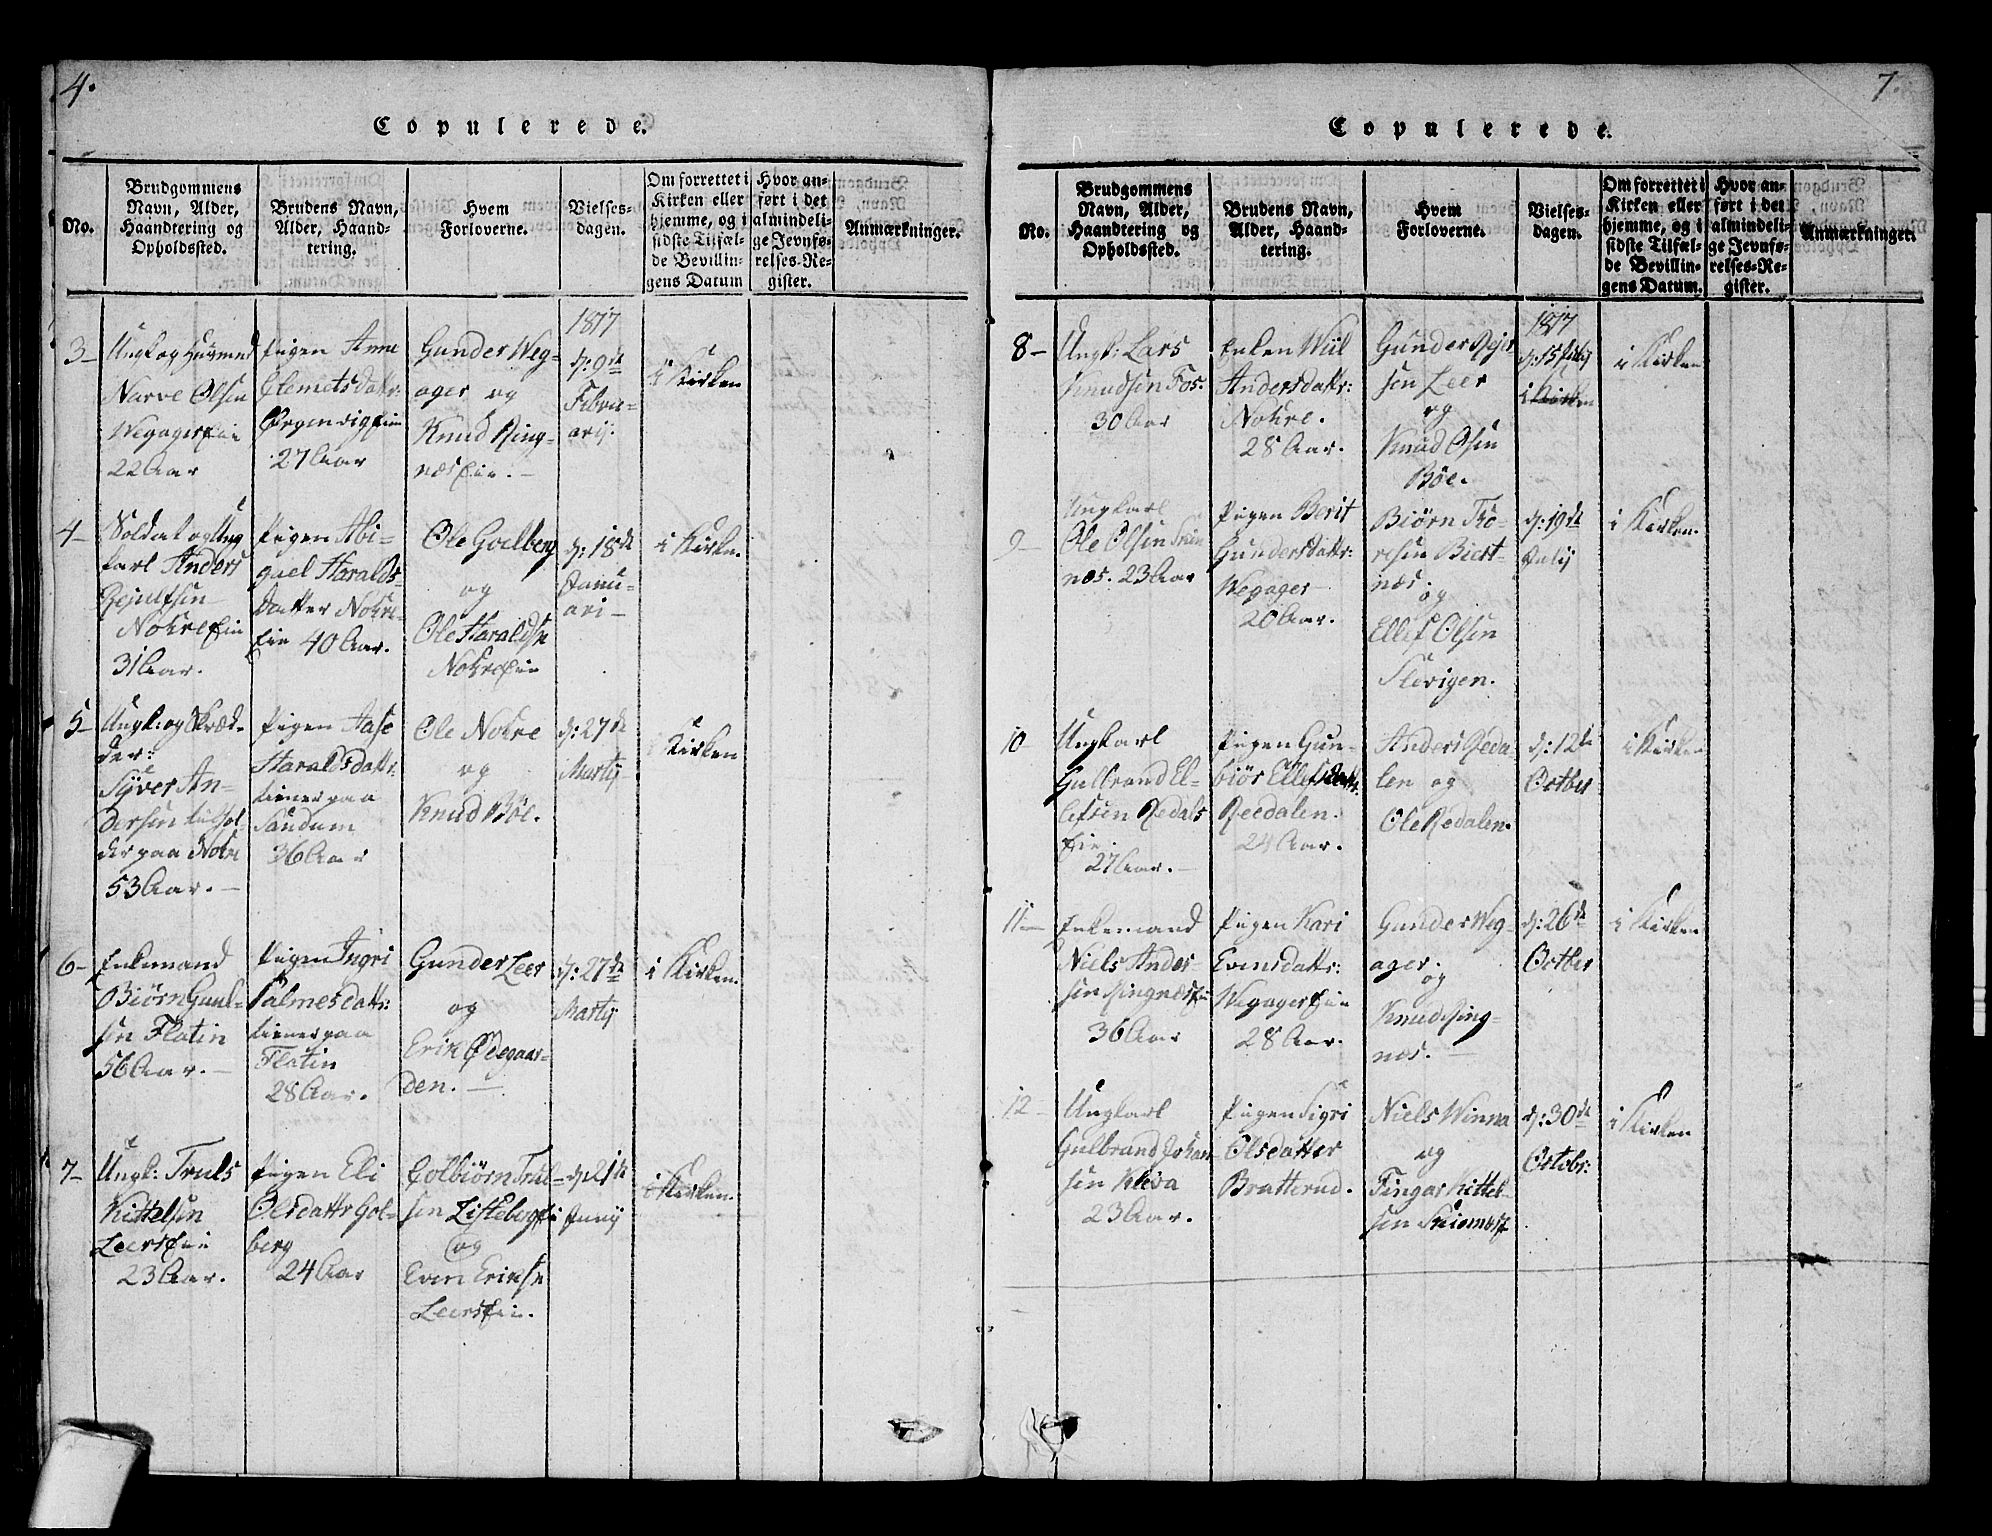 4.
Copulerede.
No.
Brudgommens
Navn, Alder,
Haandtering og
Opholdssted.
Brudens Navn,
Alder, Haand-
tering.
Hvem
Forloverne.
Vielses-
dagen.
Om forrettet i
Kirken eller
hjemme, og i
sidste Tilfæl-
de Bevillin-
gens Datum
Hvor an-
ført i det
almindeli-
ge Jevnfø-
relses-Re-
gister.
Anmærkninger.
3-
Ungk og Huusmand
Narve Olsen
Wegagereie
22 Aar
Pigen Anne
Clemetsdattr:
27 Aar
Gunder Weg-
ager og
Knud Ring-
næseie. -
1817
d: 9de
Febru-
arij.
i Kirken
4-
Soldat og Ung
karl Anders
Nokreeie
31 Aar.
Pigen Abi-
gael Haralds-
datter Nokre-
eie 40 Aar.
Ole Goelberg
og
Ole Haraldsn
Nokreeie
d: 18de
Janu-
ari -
i Kirken
5-
Ungk: og Skræd-
der:
Syver An-
dersen
der paa Nokre
53 Aar. -
Pigen Aase
Haraldsdattr:
tiener paa
Sandum
36 Aar
Ole Nokre
og
Knud Bøe.
d: 27de
Martij
i Kirken
6-
Enkemand
Biørn Guul-
sen Flatin
56 Aar. -
Pigen Ingri
Palmesdattr:
tiener paa
Flatin
28 Aar.
Gunder Leer
og
Erik Ødegaar-
den. -
d: 27de
Martij
i Kirken.
7-
Ungk: Truls
Kittelsen
Leerseie
23 Aar.
Pigen Eli
Olesdattr Gol-
berg
24 Aar
Colbiørn Trul-
sen Listebergei
og
Even Eriksn
Leerseie.
d: 21de
Junij
i Kirken.
7.
Copulerede.
No.
Brudgommens
Navn, Alder,
Haandtering og
Opholdssted.
Brudens Navn,
Alder, Haand-
tering.
Hvem
Forloverne.
Vielses-
dagen.
Om forrettet i
Kirken eller
hjemme, og i
sidste Tilfæl-
de Bevillin-
gens Datum.
Hvor an-
ført i det
almindeli-
ge Jevnfø-
relses-Re-
gister.
Anmærkninger.
8-
Ungk: Lars
Knudsen Fos.
30 Aar
Enken Wiil
Andersdattr:
Nokre.
28 Aar.
Gunder Rejer
sen Leer
og
Knud Olsen
Bøe.
1817
d: 15 July
i Kirken
i Kirken
9-
Ungkarl
Ole Olsen
næs. 23 Aar
Pigen Berit
Gundersdattr:
Wegager
20 Aar.
Biørn Tho-
resen Biert-
næs.
og
Ellef Olsen
Slevigen.
d: 19de
July
i Kirken.
10
Ungkarl
Gulbrand El-
lefsen Redals
eie.
27 Aar. -
Pigen Gun-
biør Ellefsdattr.
Reedalen.
24 Aar.
Anders Reda-
len og
Ole Redalen.
d: 12de
October
i Kirken
11-
Enkemand
Niels Ander-
sen Ringnæsei
36 Aar
Pigen Kari
Evensdattr:
Wegagereie
28 Aar.
Gunder Weg-
ager.
og
Knud Ring-
næs. -
d: 26de
October
i Kirken
12-
Ungkarl
Gulbrand Johan
sen Kleva
23 Aar.
Pigen Sigri
Olsdatter
Bratterud.
Niels Winna
og
Fingar Kittel-
sen
d: 30de
Octobr:
i Kirken